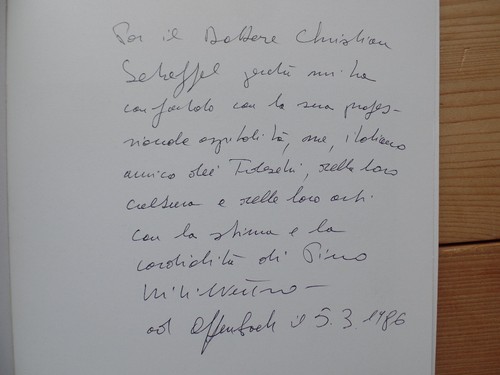 Per il Dottore Christian
Scheffel perché mi ha
confortato con la sua profes-
sionale ospitalità, me, italiano
amico dei Tedeschi, nella loro
cultura e nelle loro arti
con la stima e la
cordialità di Pino
ad Offenbach il 5.3.1986